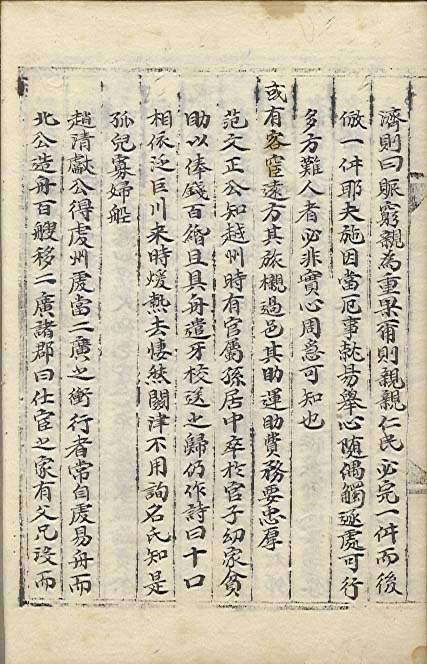 濟則曰賑窮親為重果甭則親親仁民必完一件而後
倣一件耶夫施因當厄事就易舉心随偶觸逐處可行
多方難人者必非實心周意可知也
或有客窆遠方其旅櫬過邑其助運助費務要忠厚
范文正公知越州時有官屬孫居中卒於官子幼家貧
助以俸錢百緡且具舟遣牙校送之歸仍作詩曰十口
相依泛巨川来時煖熱去悽然関津不用詢名氏知是
孤兒寡婦船
趙清獻公得虔州虔當二廣之衝行者常自虔易舟而
北公造舟百艘移二廣諸郡曰仕宦之家有父兄没而